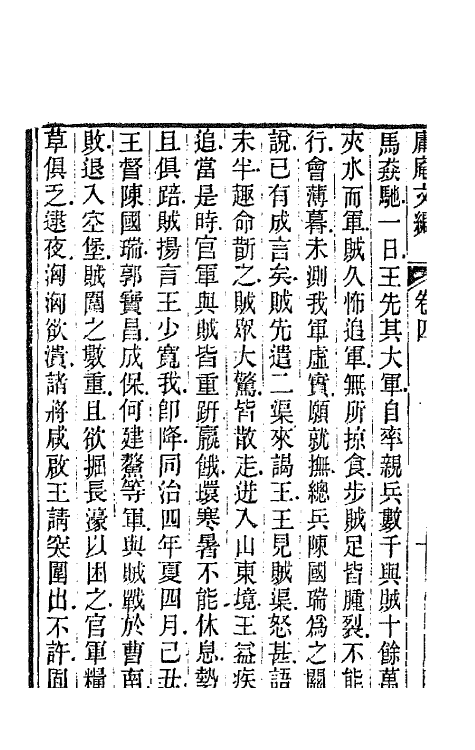 庸庵文編 卷四 十
馬猋馳一日王先其大軍自率親兵數千與賊十餘萬
夾水而軍賊久怖追軍無所掠食步賊足皆腫裂不能
行會薄暮未測我軍虛實願就撫總兵陳國瑞爲之關
說已有成言矣賊先遣二渠來謁王王見賊渠怒甚語
未半趣命斮之賊眾大驚皆散走進入山東境王益疾
追當是時官軍與賊皆重趼羸餓環寒暑不能休息勢
且俱踣賊揚言王少寬我卽降同治四年夏四月己丑
王督陳國瑞郭寶昌成保何建鰲等軍與賊戰於曹南
敗退入空堡賊闈之數重且欲掘長濠以困之官軍糧
草俱乏逮夜洶洶欲潰諸將咸啟王請突圍出不許固